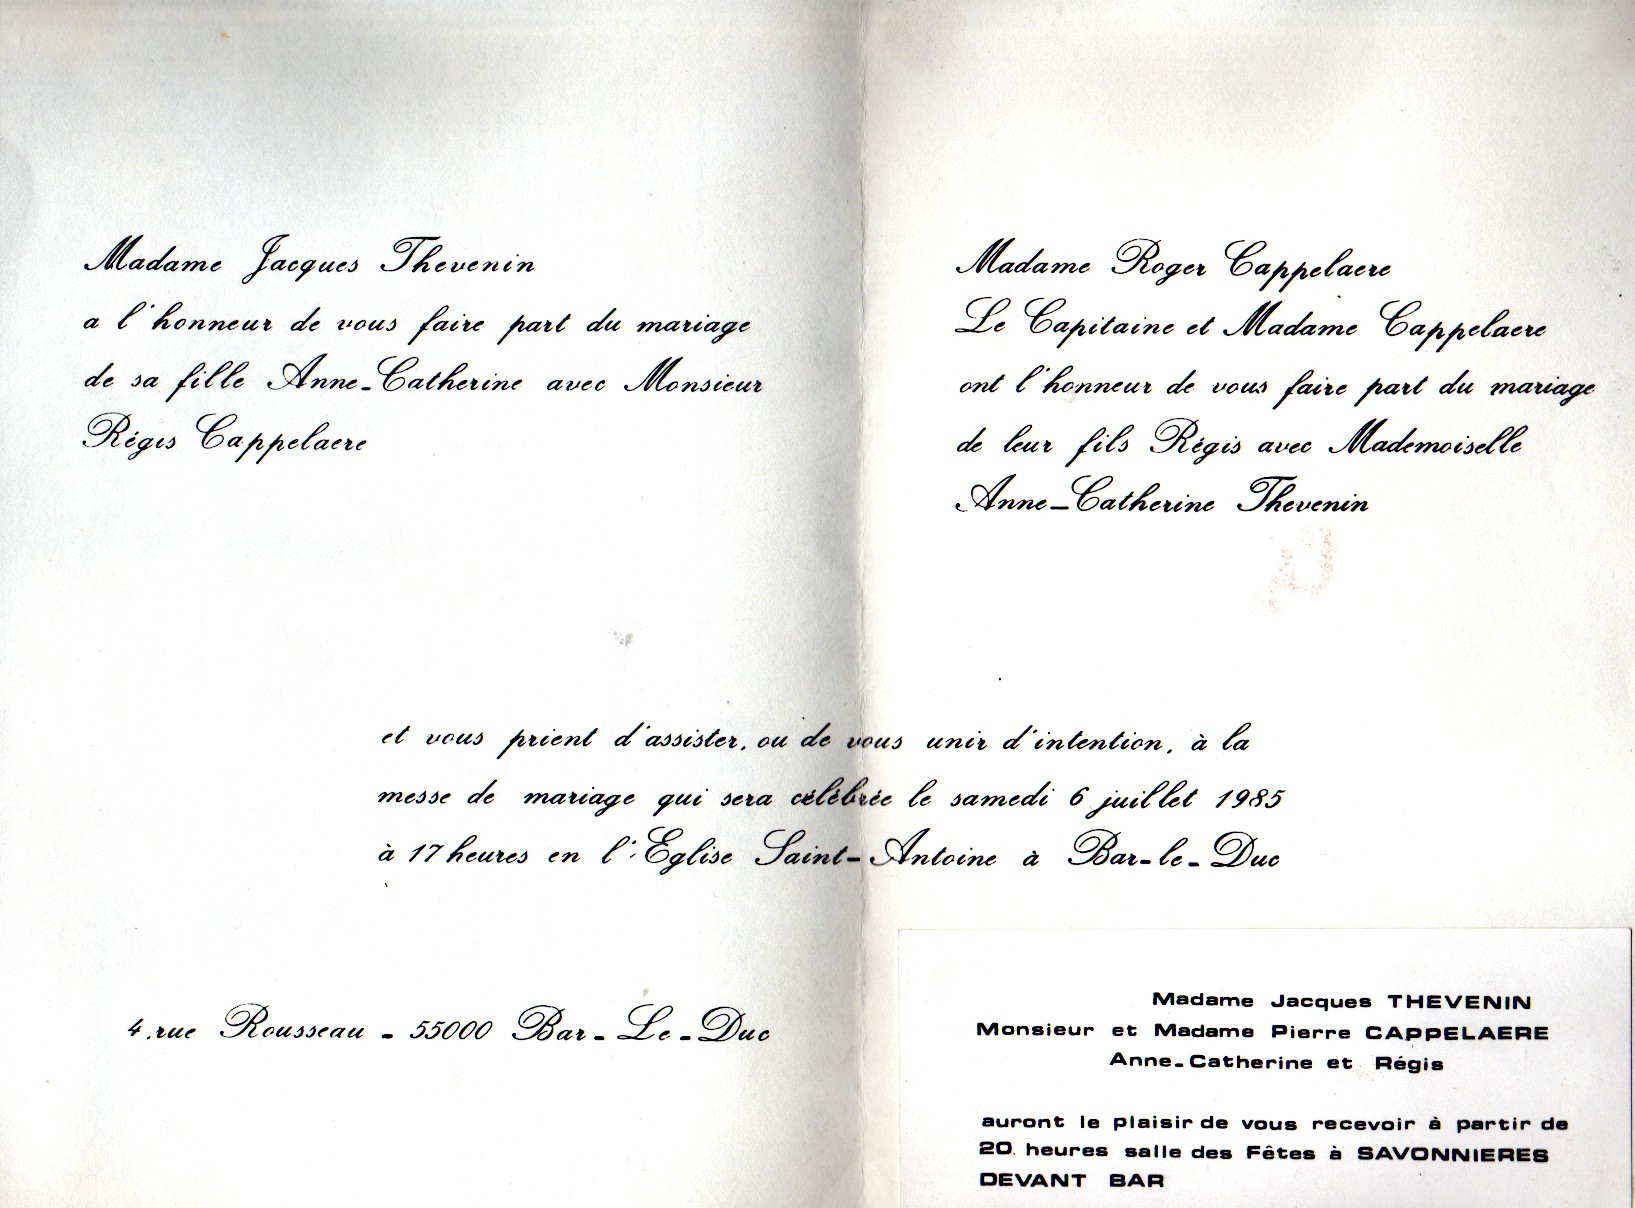 Madame Jacques Thevenin
a l'honneur de vous faire part du mariage
de sa fille Anne-Catherine avec Monsieur
Régis Cappelaere
Madame Roger Cappelaere
Le Capitaine et Madame Cappelaere
ont l'honneur de vous faire part du mariage
de leur fils Régis avec Mademoiselle
Anne-Catherine Thevenin
et vous prient d'assister, ou de vous unir d'intention, à la
messe de mariage qui sera célébrée le samedi 6 juillet 1985
à 17 heures en l'Eglise Saint-Antoine à Bar-le-Duc
4, rue Rousseau - 55000 Bar-Le-Duc
Madame Jacques THEVENIN
Monsieur et Madame Pierre CAPPELAERE
Anne-Catherine et Régis
auront le plaisir de vous recevoir à partir de
20 heures salle des Fêtes à SAVONNIERES
DEVANT BAR